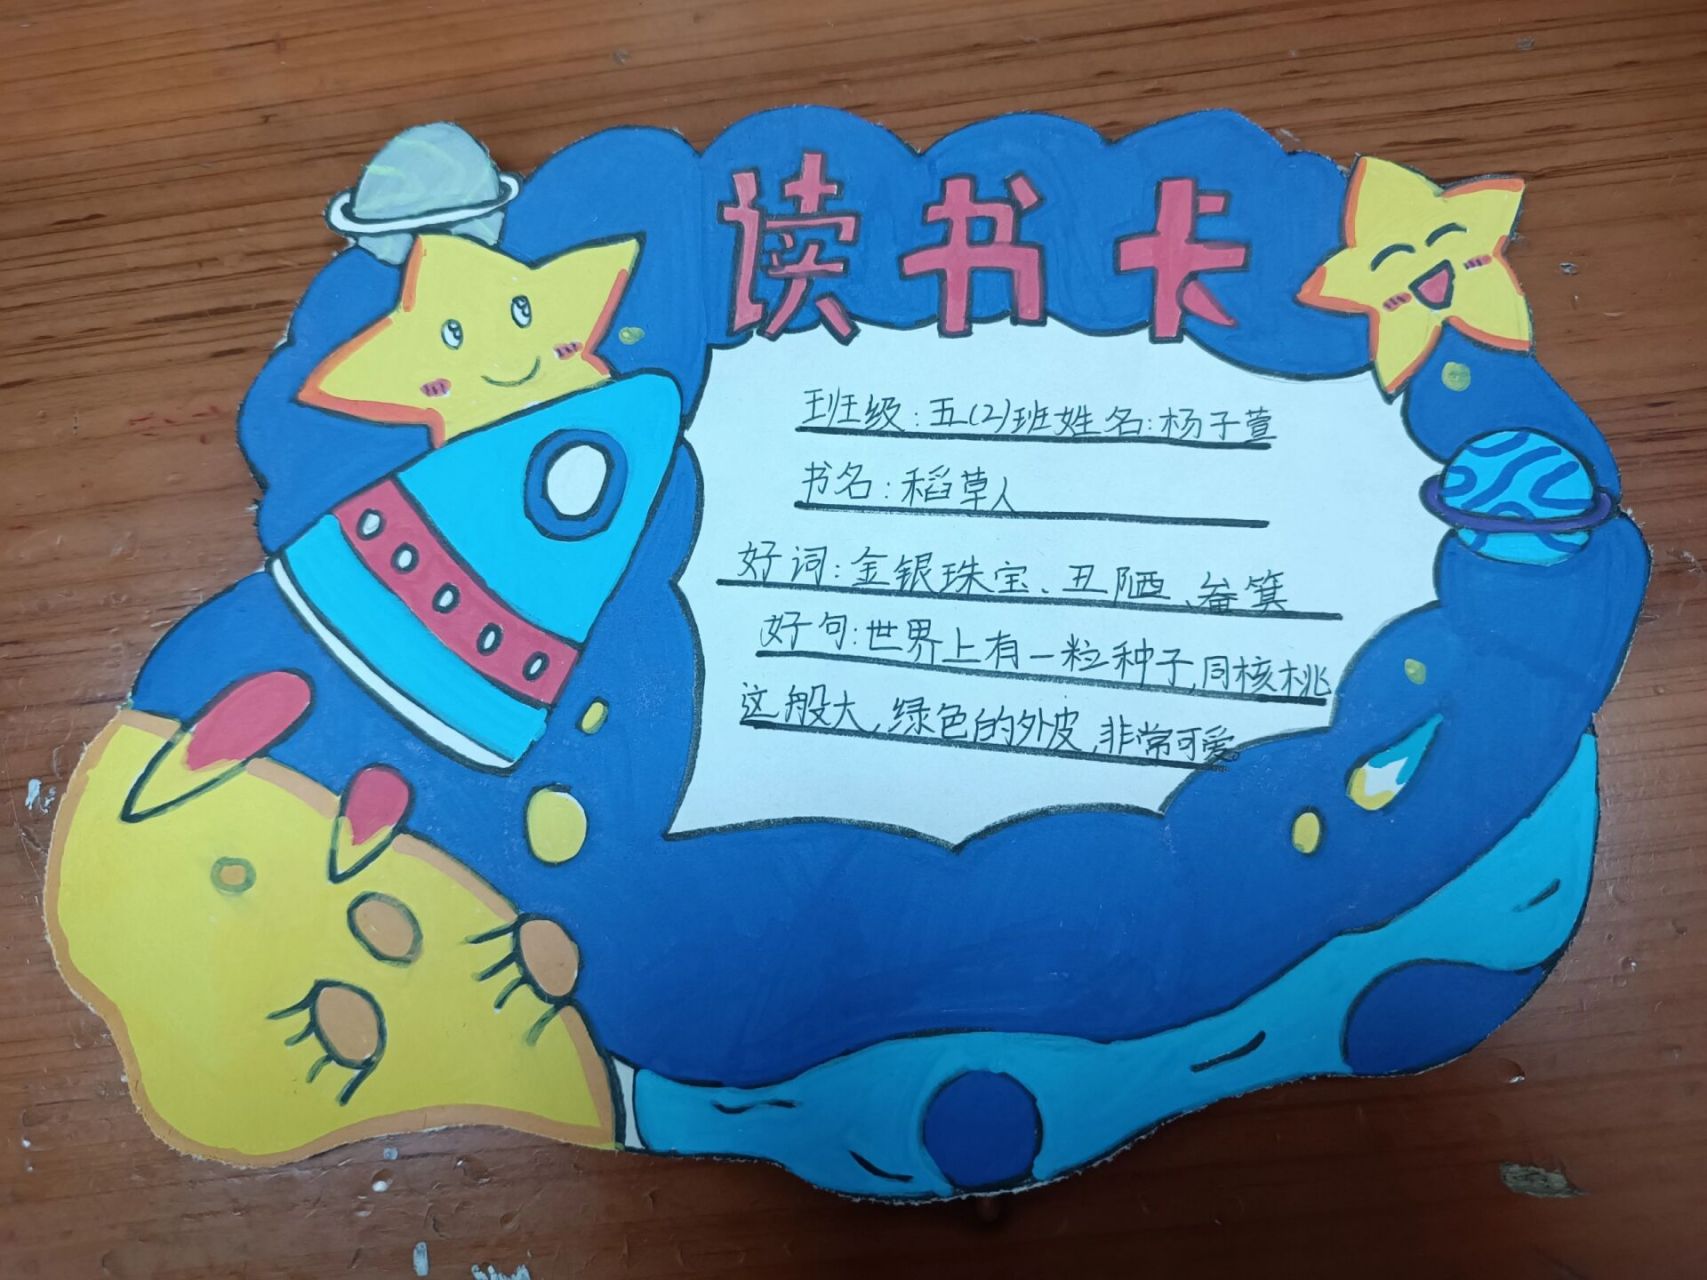 读书卡
班级:五(2)班姓名:杨子萱
书名:稻草人
好词:金银珠宝、丑陋、畚箕
好句:世界上有一粒种子,同核桃
这般大,绿色的外皮,非常可爱。